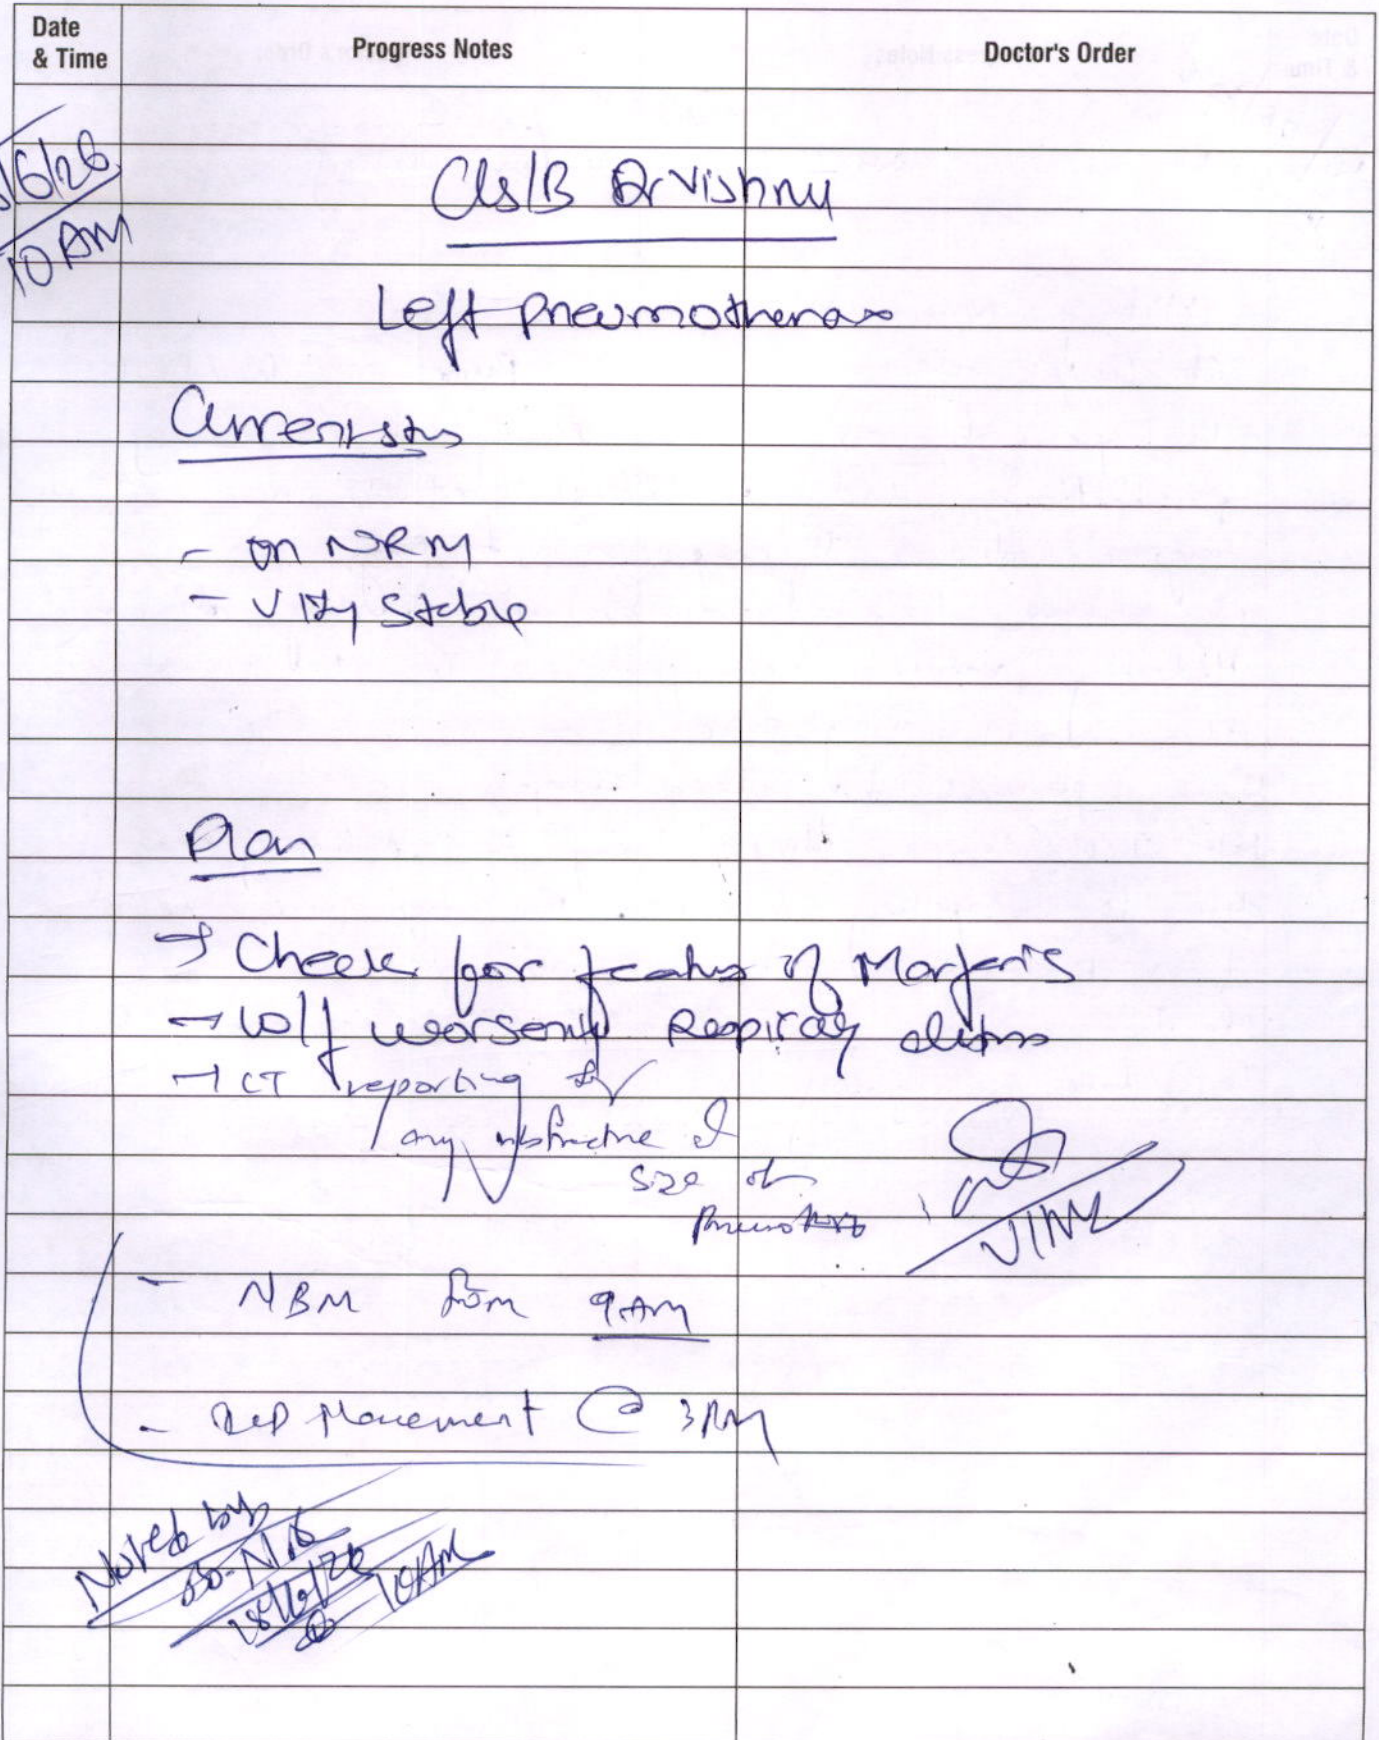 Date & Time Progress Notes Doctor's Order
/6/26
10 AM
C/s/B Dr Vishnu
Left Pneumothorax
Current sts
- on NRM
- Vitly stable
Plan
→ Check for features of Marfan's
→ W/f worsening Respiraty distress
→ CT reporting
any &
size of
Pneumothorax
- NBM from 9AM
- ICD Placement @ 3PM
Noted by
10AM